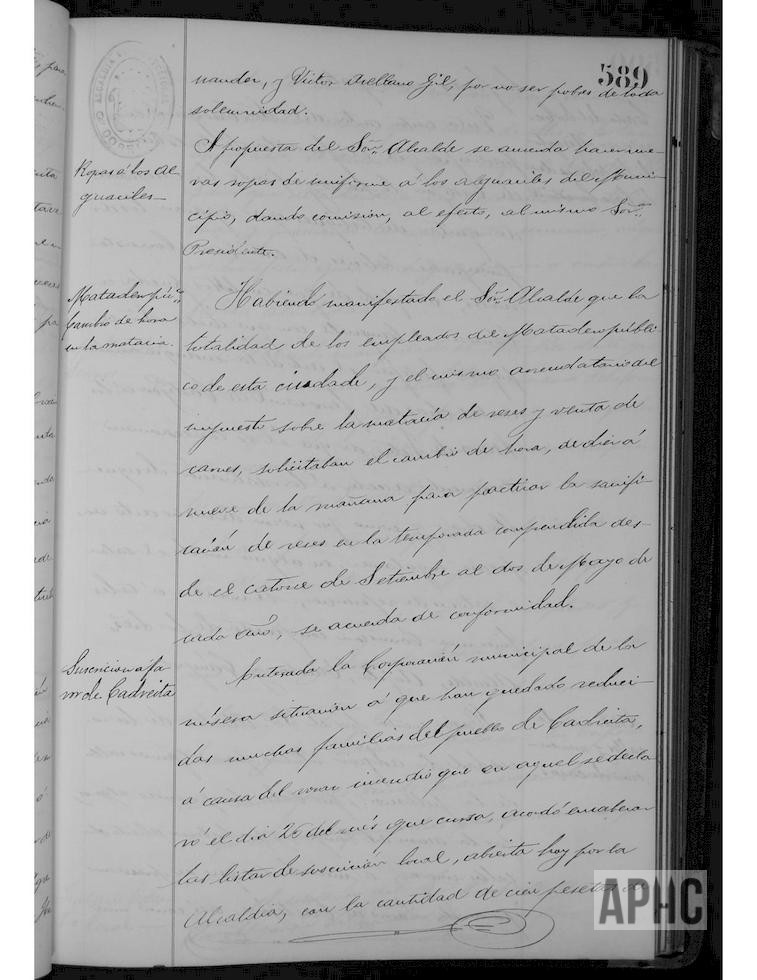 589
nandez, y Victor Arellano Gil, por no ser pobres de toda
solemnidad.
Ropas á los al-
guaciles
A propuesta del Sor. Alcalde se acuerda hacer nue-
vas ropas de uniforme á los alguaciles del Muni-
cipio, dando comisión, al efecto, al mismo Sor.
Presidente.
Matadero púco.
Cambio de hora
en la matacia.
Habiendo manifestado el Sor. Alcalde que la
totalidad de los empleados del Matadero públi-
co de esta ciudad, y el mismo arrendatario del
impuesto sobre la matacía de reses y venta de
carnes, solicitaban el cambio de hora, de diez á
nueve de la mañana para practicar la sacrifi-
cación de reses en la temporada comprendida des-
de el catorce de Setiembre al dos de Mayo de
cada año, se acuerda de conformidad.
Suscricion a fa
vor de Cadreita
Enterada la Corporación municipal de la
mísera situación á que han quedado reduci-
das muchas familias del pueblo de Cadreita,
á causa del voraz incendio que en aquel se decla
ró el dia 26 del més que cursa, acordó encabezar
las listas de suscrición local, abierta hoy por la
Alcaldia, con la cantidad de cien pesetas de
APHC